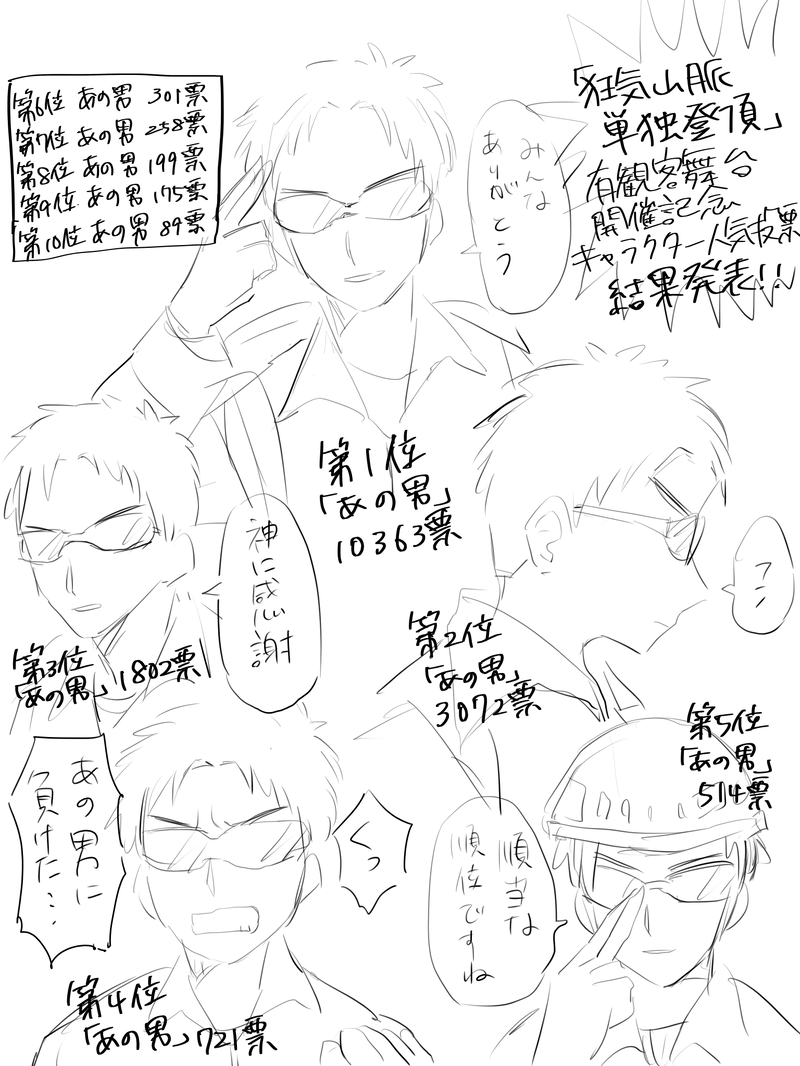 「狂気山脈
単独登頂」
有観客舞台
開催記念
キャラクター人気投票
結果発表!!
第6位 あの男 301票
第7位 あの男 258票
第8位 あの男 199票
第9位 あの男 175票
第10位 あの男 89票
みんな
ありがとう
第1位
「あの男」
10363票
フン
第2位
「あの男」
3072票
神に感謝
第3位
「あの男」1802票
くっ
あの男に
負けた…
第4位
「あの男」721票
第5位
「あの男」
514票
順当な
順位ですね